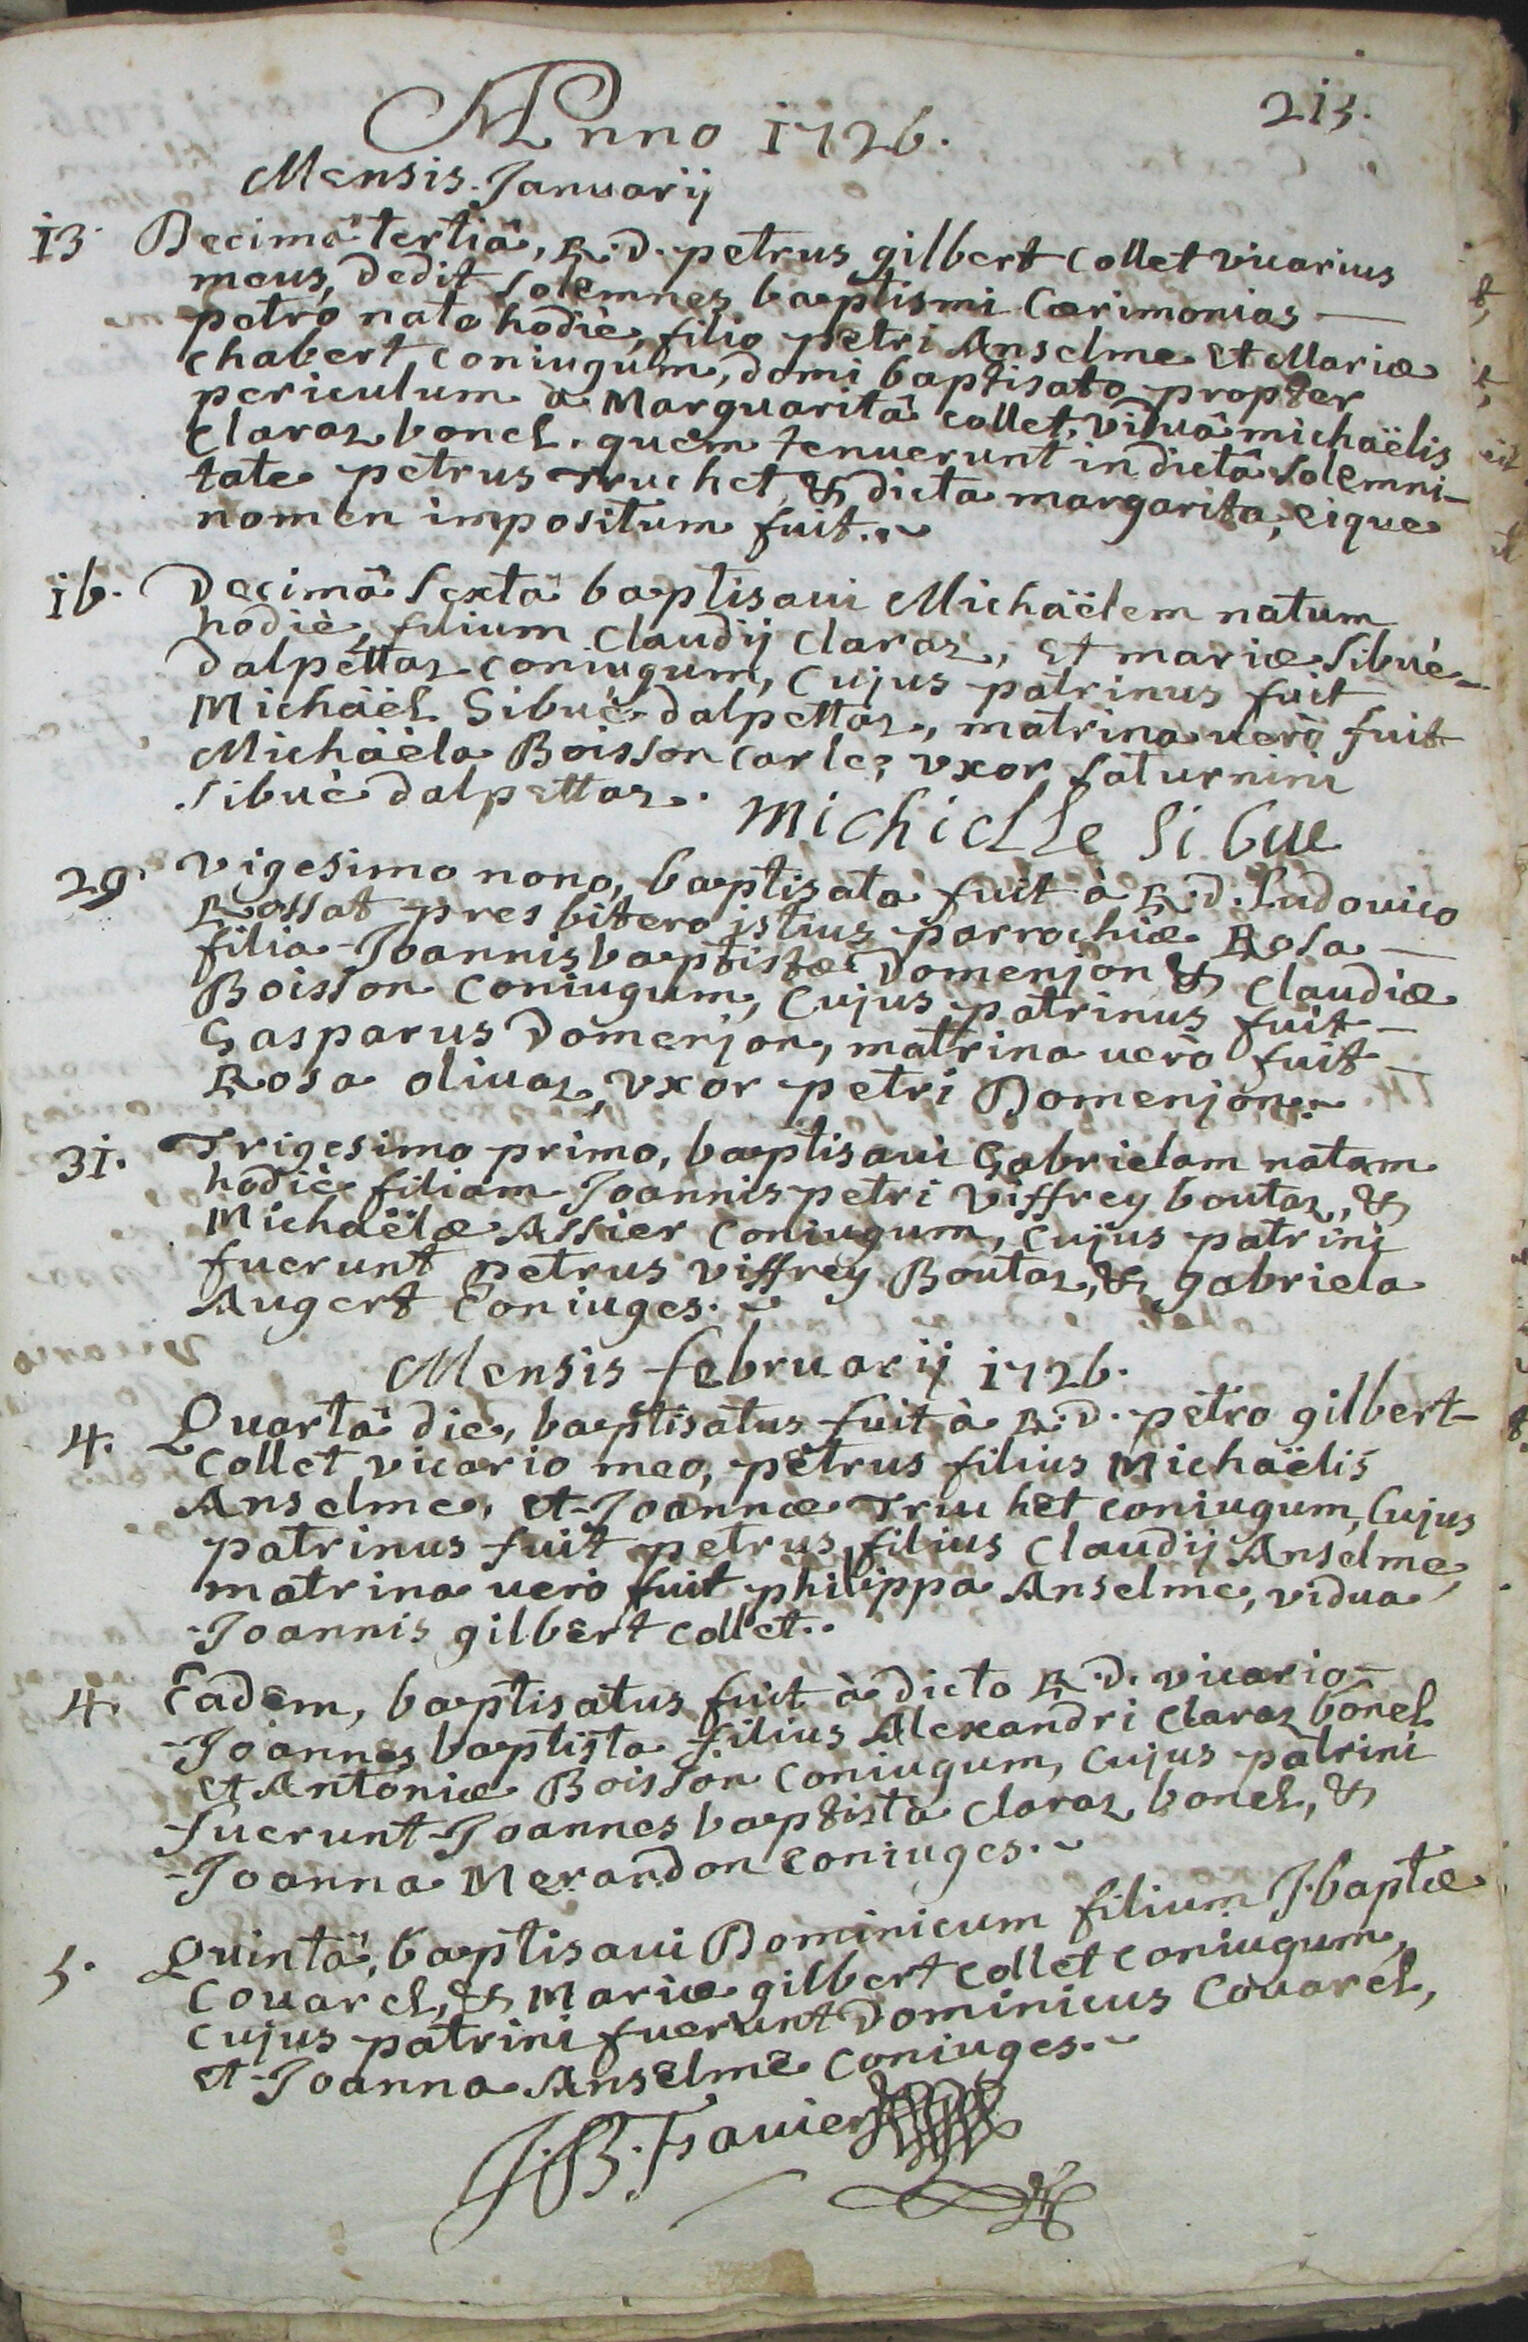 213.
Anno 1726.
Mensis Januarij
13. Decimâ tertiâ, R.D. petrus gilbert Collet vicarius
meus, dedit Solemnes baptismi Cærimonias —
petro nato hodiè, filio petri Anselme et Mariæ
Chabert, coniugum, domi baptisato propter
periculum a Marguaritâ collet, viduâ michaëlis
Claraz bonel. quem tenuerunt in dictâ Solemni-
tate petrus Truchet, & dicta margarita, eique
nomen impositum fuit..
16. Decimâ Sextâ baptisaui Michäelem natum
hodiè, filium Claudij Claraz, et mariæ Sibuè-
dalpettaz coniugum, Cujus patrinus fuit
Michäel Sibuè-dalpettaz, matrina uerò fuit
Michäela Boisson Carle; vxor Saturnini
Sibuè dalpettaz.
michielle Sibue
29. Vigesimo nono, baptisata fuit à R.D. Ludouico
Rossat presbitero istius parrochiæ Rosa —
filia Joannisbaptistæ Domenjon & Claudiæ
Boisson Coniugum, Cujus patrinus fuit —
Gasparus Domenjon, matrina uerò fuit —
Rosa oliuaz, vxor petri Domenjon..
31. Trigesimo primo, baptisaui Gabrielam natam
hodiè filiam Joannis petri Viffrey boutaz, &
Michaëlæ Assier Coniugum, Cujus patrini
fuerunt petrus Viffrey Boutaz, & gabriela
Augert Coniuges.
Mensis februarij 1726.
4. Quartâ die, baptisatus fuit à R.D. petro gilbert-
Collet vicario meo, petrus filius Michaëlis
Anselme, et Joannæ Truchet coniugum, Cujus
patrinus fuit petrus, filius Claudij Anselme,
matrina uerò fuit philippa Anselme, vidua
Joannis gilbert collet..
4. Eadem, baptisatus fuit à dicto R.D. vicario —
Joannes baptista filius Alexandri Claraz bonel
et Antoniæ Boisson Coniugum, Cujus patrini
fuerunt Joannes baptista Claraz bonel, &
Joanna Merandon Coniuges.
5. Quintâ, baptisaui Dominicum filium J.baptæ
Couarel, & Mariæ gilbert collet coniugum,
Cujus patrini fuerunt Dominicus Couarel,
et Joanna Anselme Coniuges.